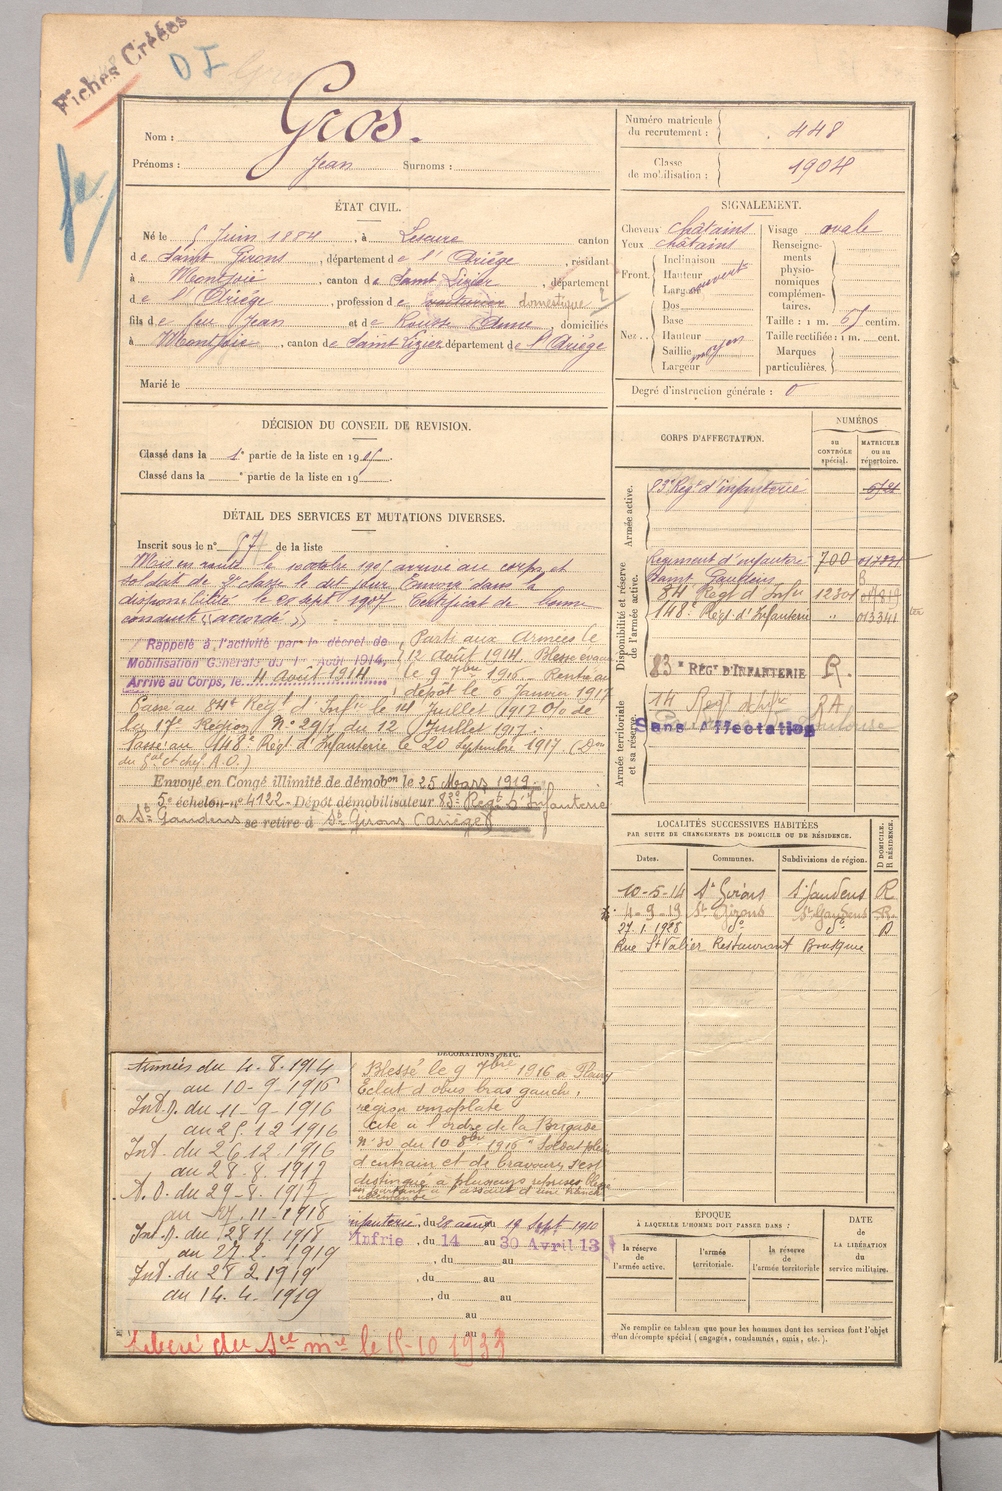 Fiches Créées
DI
Nom : Gros.
Prénoms : Jean Surnoms :
Numéro matricule du recrutement : 448
Classe de mobilisation : 1904
ÉTAT CIVIL.
Né le 5 Juin 1884, à Lescure canton
de Saint Girons, département de l'Ariège, résidant
à Montjoie, canton de Saint Lizier, département
de l'Ariège, profession de domestique
fils de feu Jean et de Rouste Anne, domiciliés
à Montjoie, canton de Saint Lizier département de l'Ariège
Marié le
SIGNALEMENT.
Cheveux châtains
Yeux châtains
Front. Inclinaison
Hauteur
Largeur
ouvert
Nez.. Dos
Base
Hauteur
Saillie
Largeur
moyen
Visage ovale
Renseignements physionomiques complémentaires.
Taille : 1 m. 57 centim.
Taille rectifiée : 1 m. cent.
Marques particulières.
Degré d'instruction générale : 0
DÉCISION DU CONSEIL DE REVISION.
Classé dans la 1e partie de la liste en 1905.
Classé dans la e partie de la liste en 19
DÉTAIL DES SERVICES ET MUTATIONS DIVERSES.
Inscrit sous le n° 57 de la liste
Mis en route le 10 octobre 1905 arrivé au corps et
soldat de 2e classe le dit jour. Envoyé dans la
disponibilité le 28 sept 1907. Certificat de bonne
conduite "accordé"
Rappelé à l'activité par le décret de
Mobilisation Générale du 1er Août 1914.
Arrivé au Corps, le 4 août 1914
Parti aux Armées le
12 août 1914. Blessé évacué
le 9 7bre 1916. Rentré au
dépôt le 6 Janvier 1917
Passé au 84e Régt d'Infie le 14 Juillet 1917 O/ de
la 17e Région N° 29/1 du 12 Juillet 1917.
Passé au 148e Régt d'Infanterie le 20 septembre 1917 (Don
du Gal ct chef A.O.)
Envoyé en Congé illimité de démobon le 25 Mars 1919.
5e échelon n° 4122 - Dépôt démobilisateur 83e Régt d'Infanterie
à St Gaudens se retire à St Girons (Ariège)
CORPS D'AFFECTATION.
NUMÉROS
au CONTRÔLE spécial.
MATRICULE ou au répertoire.
Armée active.
83e Régt d'infanterie
Disponibilité et réserve de l'armée active.
Régiment d'infanterie 700
Saint Gaudens
84 Régt d'Infie
148e Régt d'Infanterie " 013341
83e RÉGt D'INFANTERIE R.
Armée territoriale et sa réserve.
Sans Affectation
LOCALITÉS SUCCESSIVES HABITÉES
PAR SUITE DE CHANGEMENTS DE DOMICILE OU DE RÉSIDENCE.
Dates. Communes. Subdivisions de région. D DOMICILE. R RÉSIDENCE.
10-5-14 St Girons St Gaudens R
4-9-19 St Girons St Gaudens R
27.1.1928 do do D
Rue St Valier Restaurant Bousque
Armées du 4.8.1914
au 10-9-1916
Int. J. du 11-9-1916
au 25.12 1916
Int. du 26.12.1916
au 28.8.1917
A. O. du 29-8.1917
au 27.11-1918
Int. J. du 28 11.1918
au 27.2.1919
Int. du 28 2.1919
au 14.4.1919
DÉCORATIONS, ETC.
Blessé le 9 7bre 1916 à Fleury
Eclat d'obus bras gauche,
région omoplate
Cité à l'ordre de la Brigade
n° 30 du 10 8bre 1916 "Soldat plein
d'entrain et de bravoure, s'est
distingué à plusieurs reprises. Blessé
en partant à l'assaut d'une tranchée
allemande
infanterie, du 28 août au 19 Sept 1910
Infrie, du 14 au 30 Avril 13
, du au
, du au
au
au
Libéré du Sce mre le 15-10 1933
ÉPOQUE
À LAQUELLE L'HOMME DOIT PASSER DANS :
la réserve de l'armée active.
l'armée territoriale.
la réserve de l'armée territoriale
DATE DE LA LIBÉRATION du service militaire.
Ne remplir ce tableau que pour les hommes dont les services font l'objet
d'un décompte spécial (engagés, condamnés, omis, etc.).